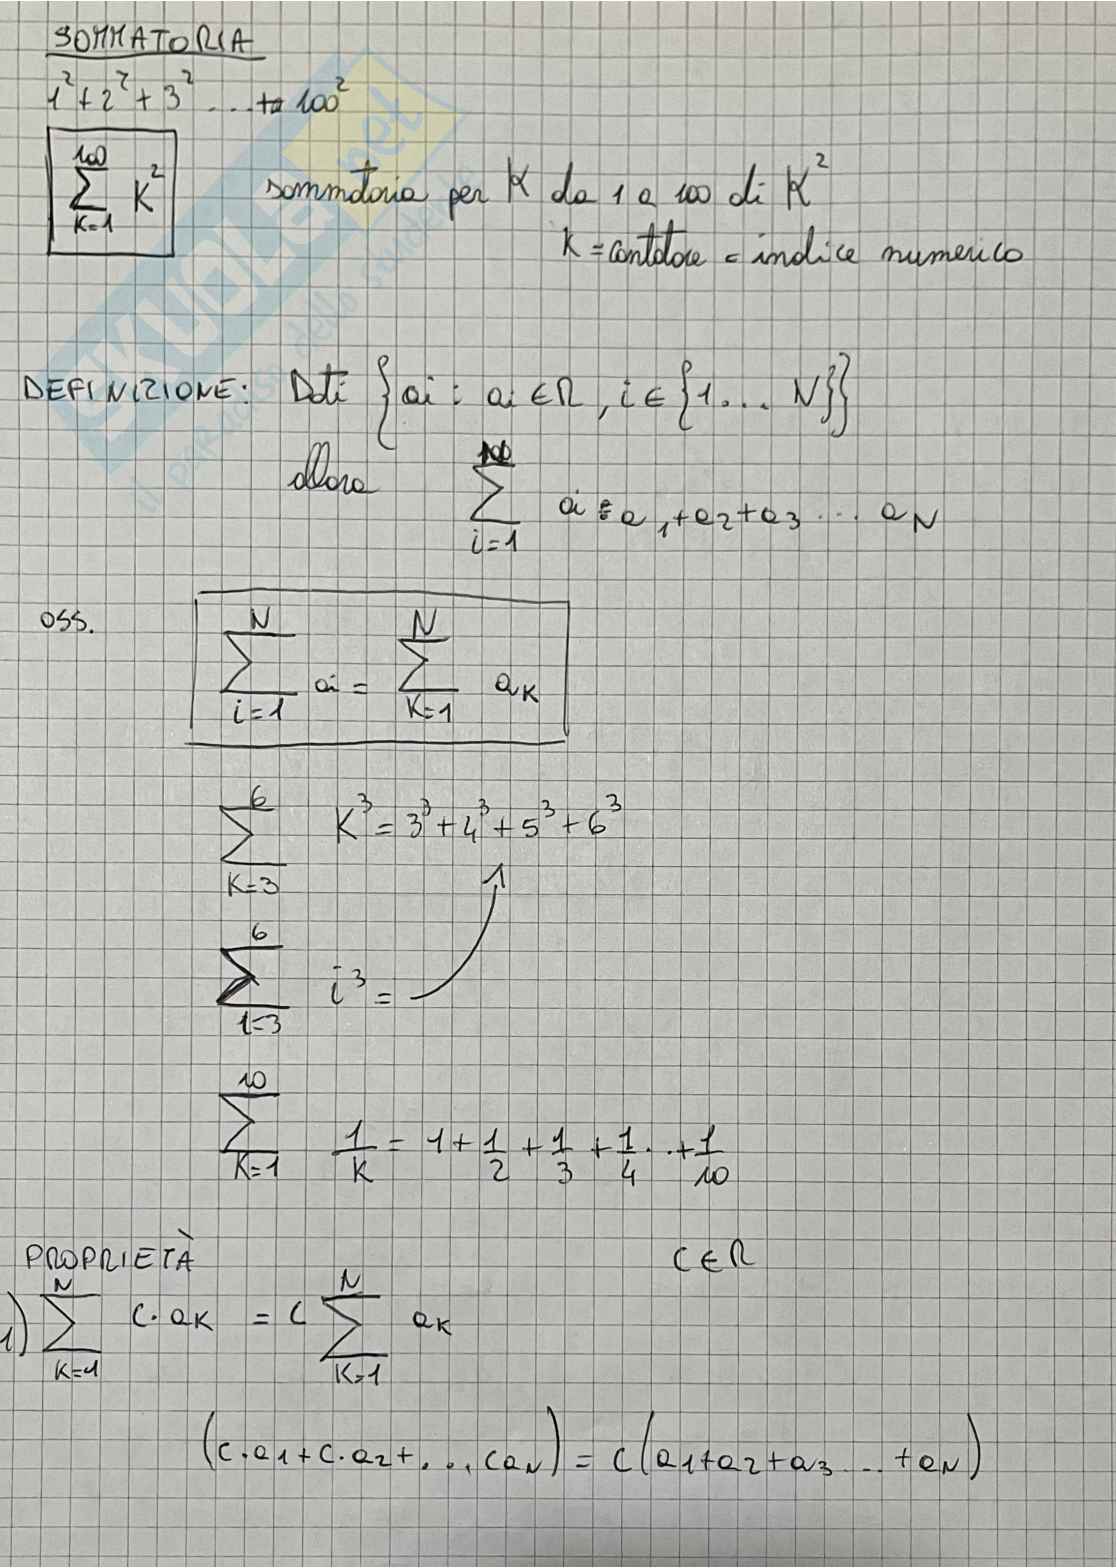 SOMMATORIA
1² + 2² + 3² ... + 100²
100
∑ K²
K=1
sommatoria per K da 1 a 100 di K²
K = contatore = indice numerico
DEFINIZIONE: Dati {ai : ai ∈ R, i ∈ {1... N}}
allora
100
∑ ai = a1 + a2 + a3 ... aN
i=1
OSS.
N N
∑ ai = ∑ aK
i=1 K=1
6
∑ K³ = 3³ + 4³ + 5³ + 6³
K=3
6
∑ i³ =
1=3
10
∑ 1/K = 1 + 1/2 + 1/3 + 1/4 .. + 1/10
K=1
PROPRIETÀ C ∈ R
N N
1) ∑ C·aK = C ∑ aK
K=1 K=1
(C·a1 + C·a2 + ... CaN) = C(a1 + a2 + a3 ... + aN)
SKUOLA.net
il paradiso dello studente